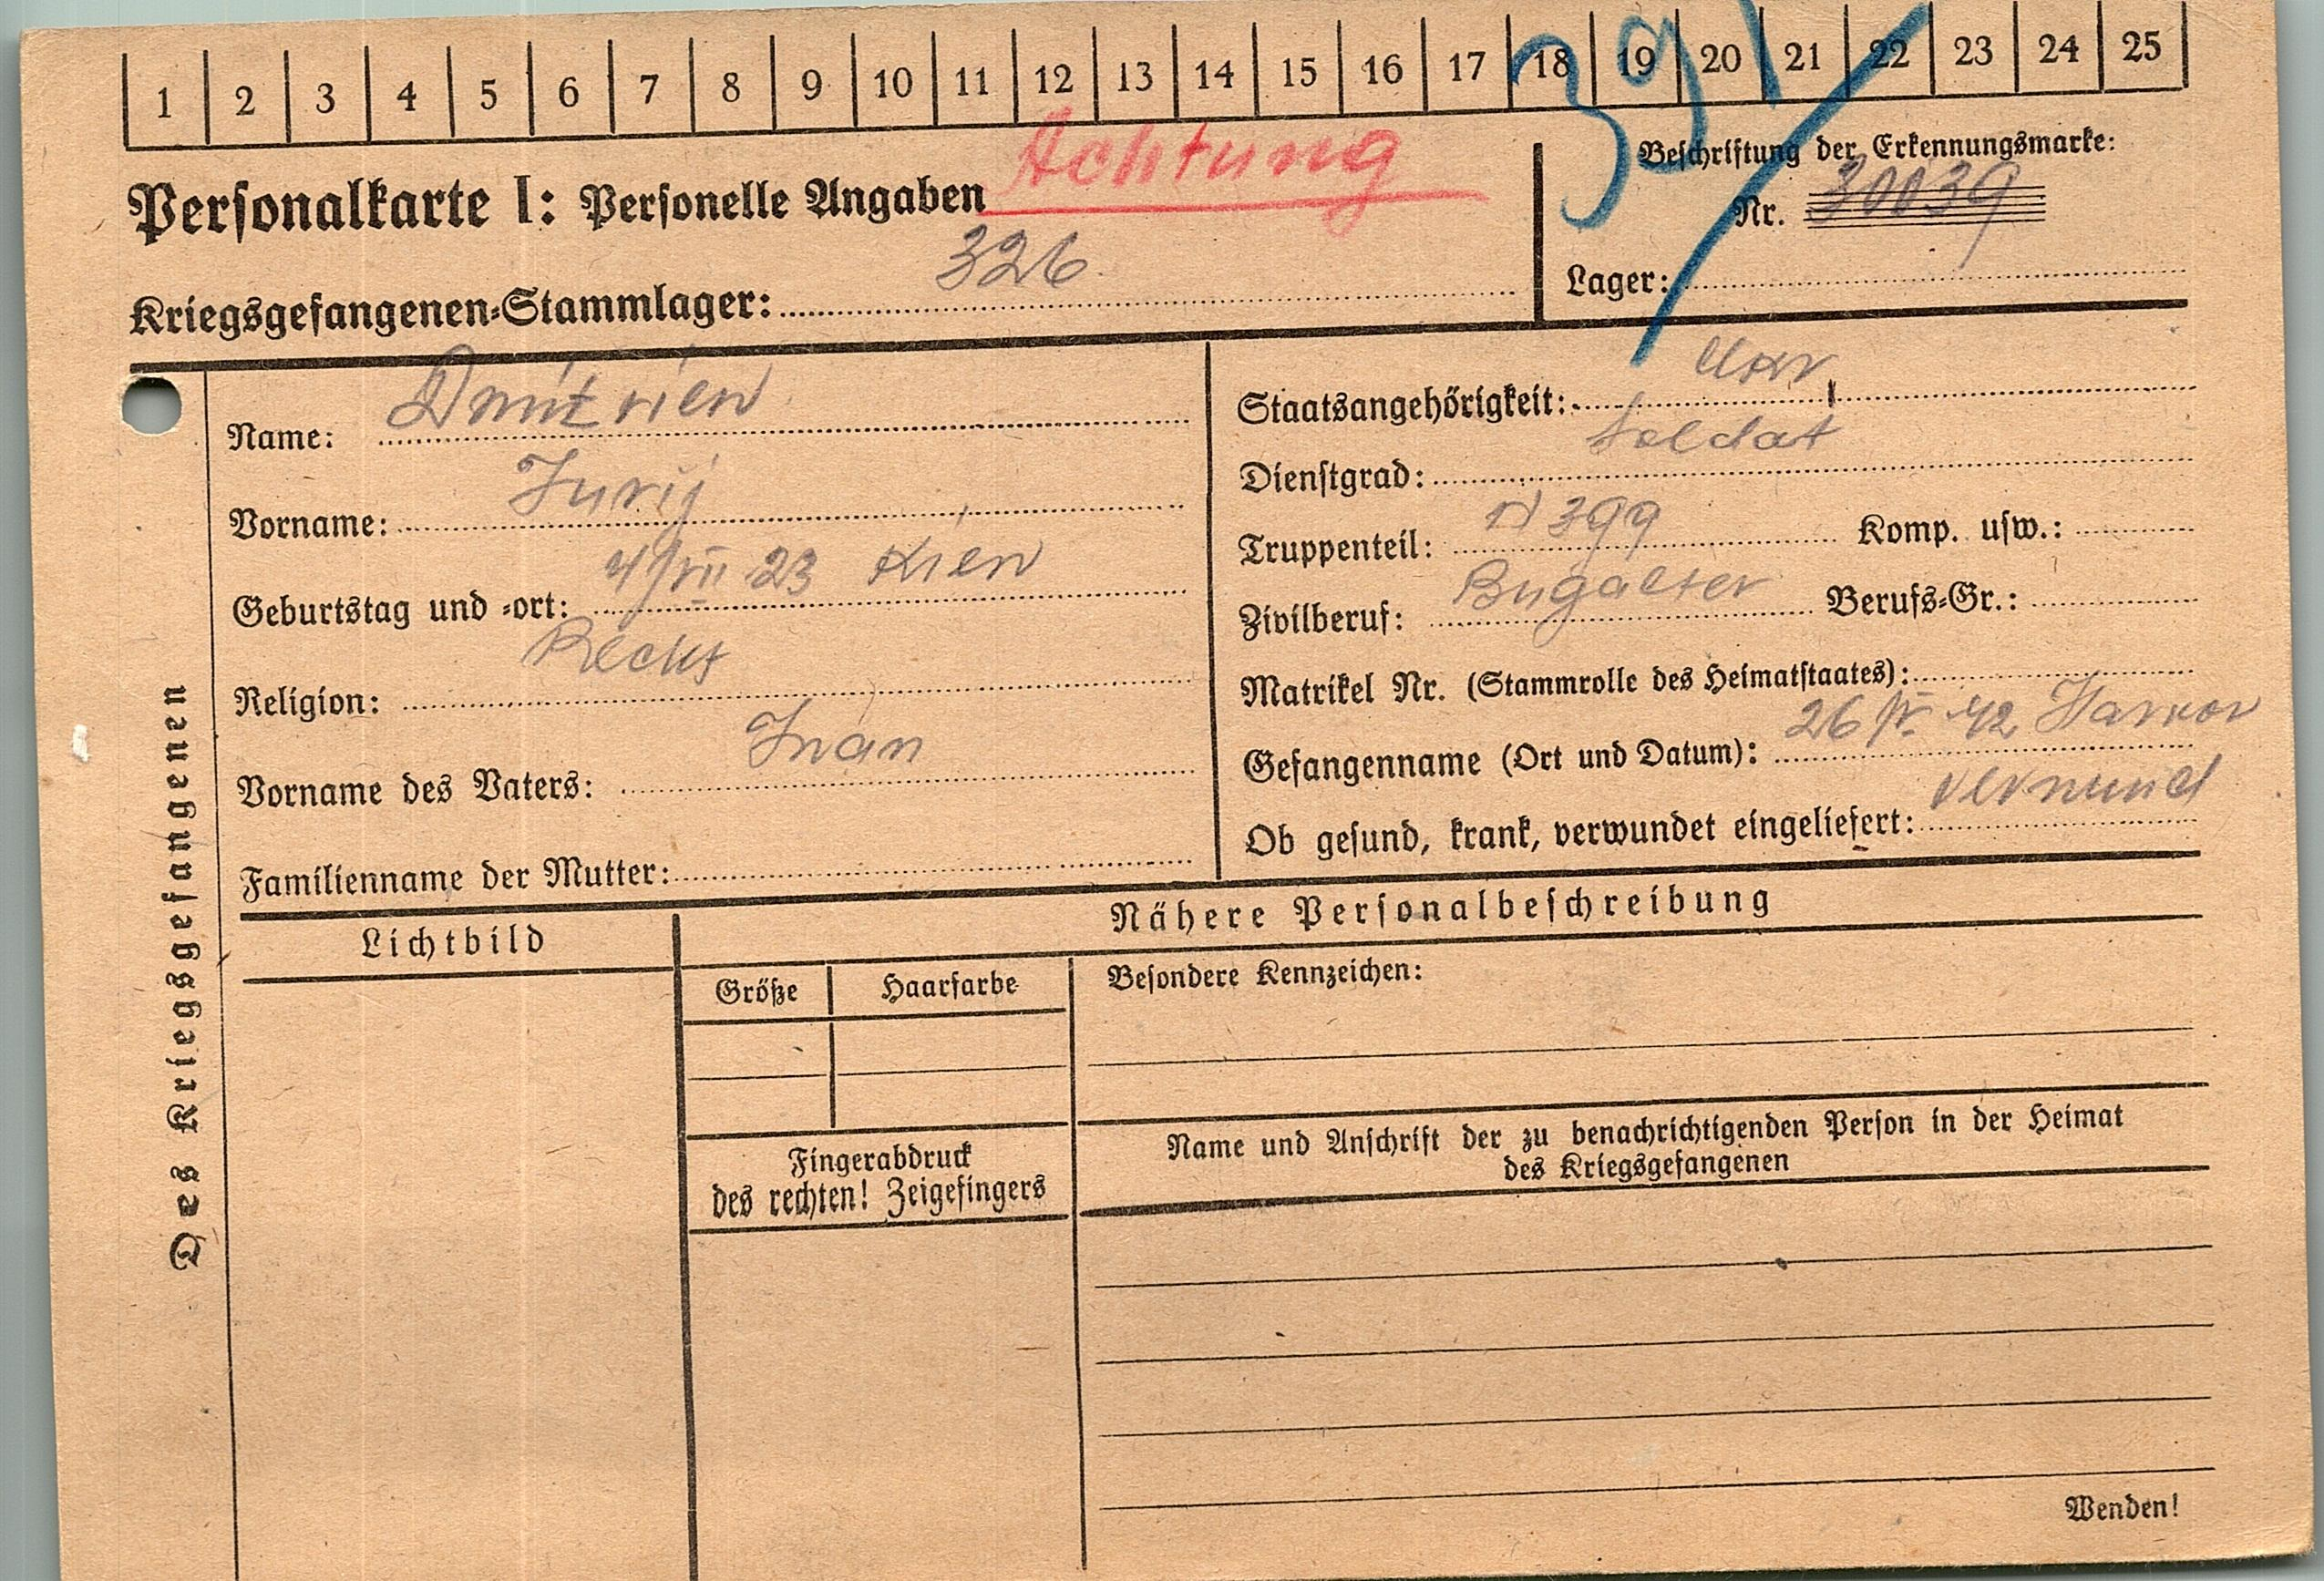 1 2 3 4 5 6 7 8 9 10 11 12 13 14 15 16 17 18 19 20 21 22 23 24 25
391
Achtung
Personalkarte I: Personelle Angaben
Beschriftung der Erkennungsmarke:
Nr. 30039
Kriegsgefangenen-Stammlager: 326
Lager:
Name: Dmitriew
Vorname: Jurij
Geburtstag und -ort: 4/VII 23 Kiew
Religion:
Vorname des Vaters: Iwan
Familienname der Mutter:
Staatsangehörigkeit: Ukr
Dienstgrad: Soldat
Truppenteil: N 399 Komp. usw.:
Zivilberuf: Bugalter Berufs-Gr.:
Matrikel Nr. (Stammrolle des Heimatstaates):
Gefangenname (Ort und Datum): 26/V 42 Harkow
Ob gesund, krank, verwundet eingeliefert: verwund
Des Kriegsgefangenen
Lichtbild
Nähere Personalbeschreibung
Größe Haarfarbe Besondere Kennzeichen:
Fingerabdruck
des rechten! Zeigefingers
Name und Anschrift der zu benachrichtigenden Person in der Heimat
des Kriegsgefangenen
Wenden!